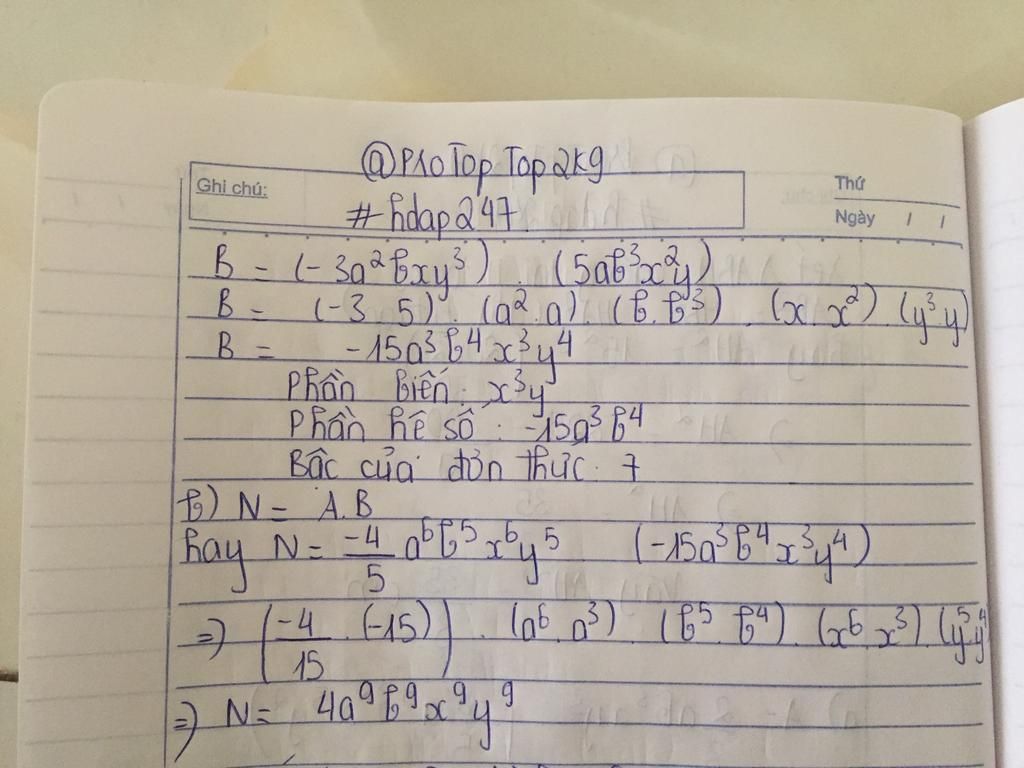 @P10TopTop2k9
Ghi chú:
#hdap247
Thứ
Ngày / /
B = (-3a²bxy³) . (5ab³x²y)
B = (-3.5) . (a².a) . (b.b³) . (x.x²) (y³.y)
B = -15a³b⁴x³y⁴
Phần biến: x³y
Phần hệ số: -15a³b⁴
Bậc của đơn thức: 7
b) N = A.B
hay N = -4/5 a⁶b⁵x⁶y⁵ (-15a³b⁴x³y⁴)
=> (-4/15 . (-15)) . (a⁶.a³) . (b⁵.b⁴) . (x⁶.x³) (y⁵.y⁴
=> N = 4a⁹b⁹x⁹y⁹